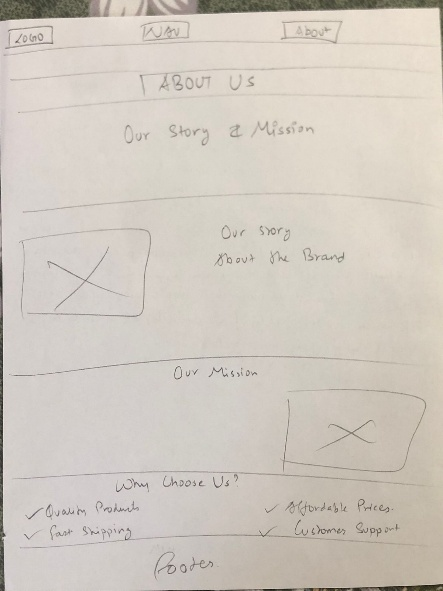 LOGO NAV About
ABOUT US
Our Story & Mission
Our story
About the Brand
Our Mission
Why Choose Us?
✓ Quality Products ✓ Affordable Prices.
✓ Fast Shipping ✓ Customer Support
Footer